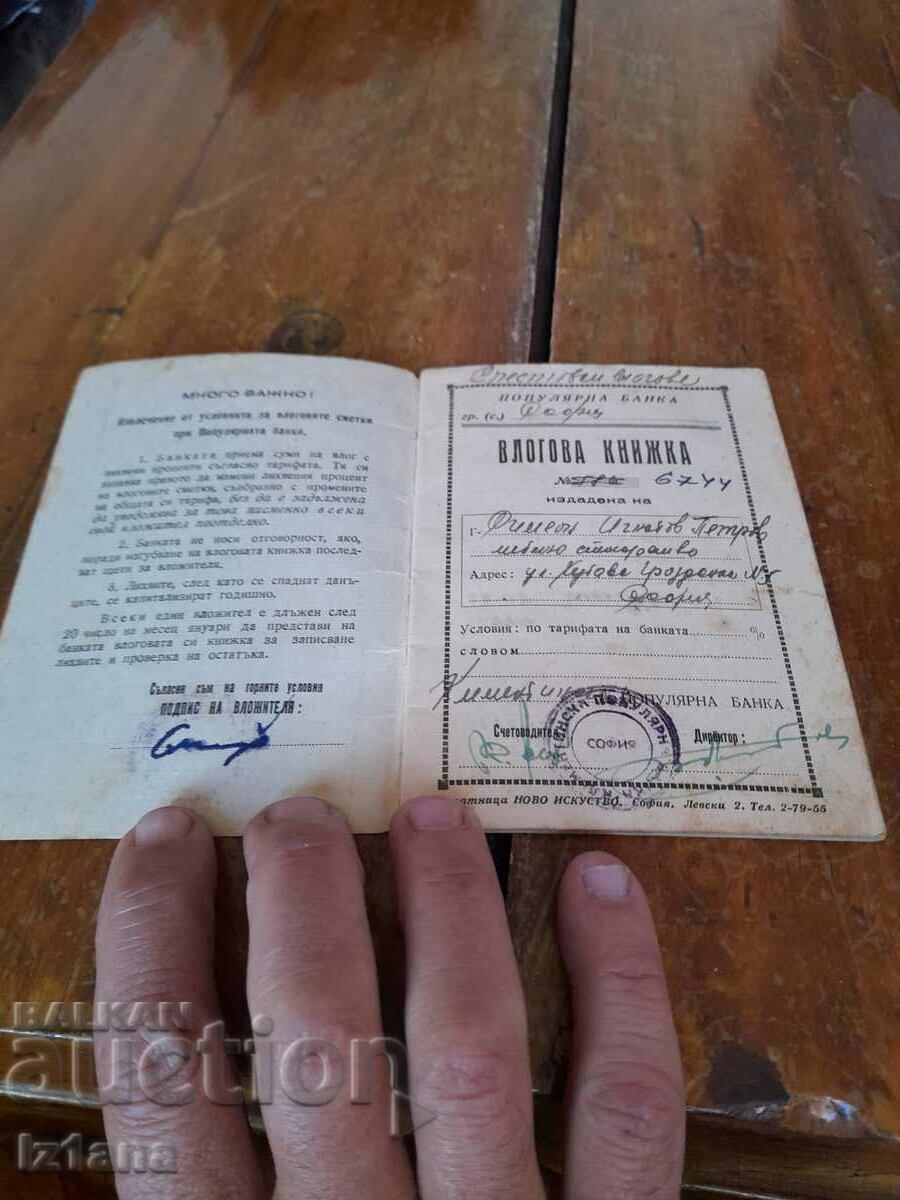 МНОГО ВАЖНО!
Извлечение от условията за влоговите сметки
при Популярната банка.
1. Банката приема суми на влог с
лихвени проценти съгласно тарифата. Тя си
запазва правото да измени лихвения процент
на влоговите сметки, съобразно с промените
на общата си тарифа, без да е задължена
да уведомява за това писменно всеки
свой вложител поотделно.
2. Банката не носи отговорност, ако,
поради изгубване на влоговата книжка послед-
ват щети за вложителя.
3. Лихвите, след като се спаднат данъ-
ците, се капитализират годишно.
Всеки един вложител е длъжен след
20 число на месец януари да представи на
банката влоговата си книжка за записване
лихвите и проверка на остатъка.
Съгласен съм на горните условия
ПОДПИС НА ВЛОЖИТЕЛЯ:
Спестовни влогове
ПОПУЛЯРНА БАНКА
гр. (с) София
ВЛОГОВА КНИЖКА
№ 6744
издадена на
г. Симеон Игнатов Петров
Адрес: ул.
София
Условия: по тарифата на банката %
словом
ПОПУЛЯРНА БАНКА
Счетоводител: Директор:
ПОПУЛЯРН
СОФИЯ
НОВО ИСКУСТВО, София, Левски 2. Тел. 2-79-55
BALKAN
auction
Iz1ana